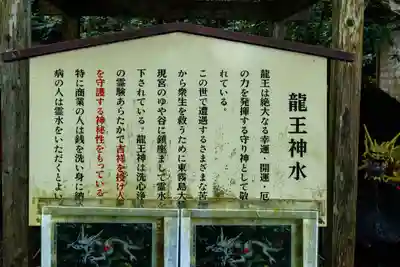 龍王神水
龍王は絶大なる幸運・開運・厄
の力を発揮する守り神として敬
れている。
この世で遭遇するさまざまな苦
から衆生を救うために東霧島大
現宮のゆや谷に鎮座まして霊水を
下されている。龍王神は洗心浄
の霊験あらたかで吉祥を授け人
を守護する神秘性をもっている
特に商業の人は銭を洗い身に納
病の人は霊水をいただくとよい